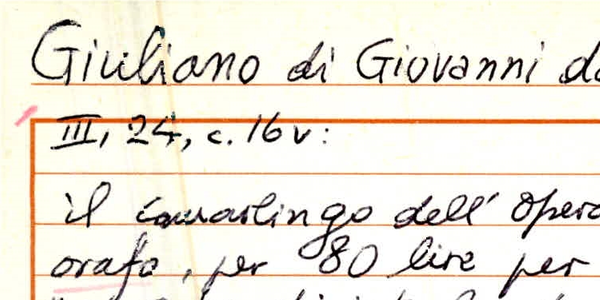 Giuliano di Giovanni da
III, 24, c. 16 v:
il camarlingo dell' Opera
orafo, per 80 lire per